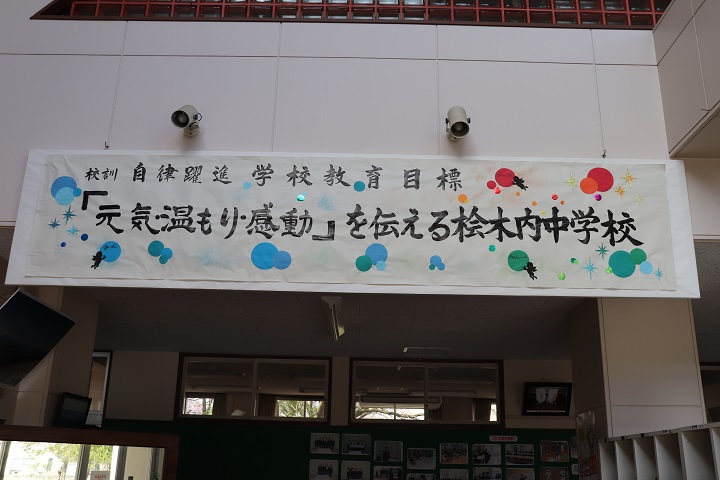 校訓 自律躍進 学校教育目標
「元気・温もり・感動」を伝える桧木内中学校